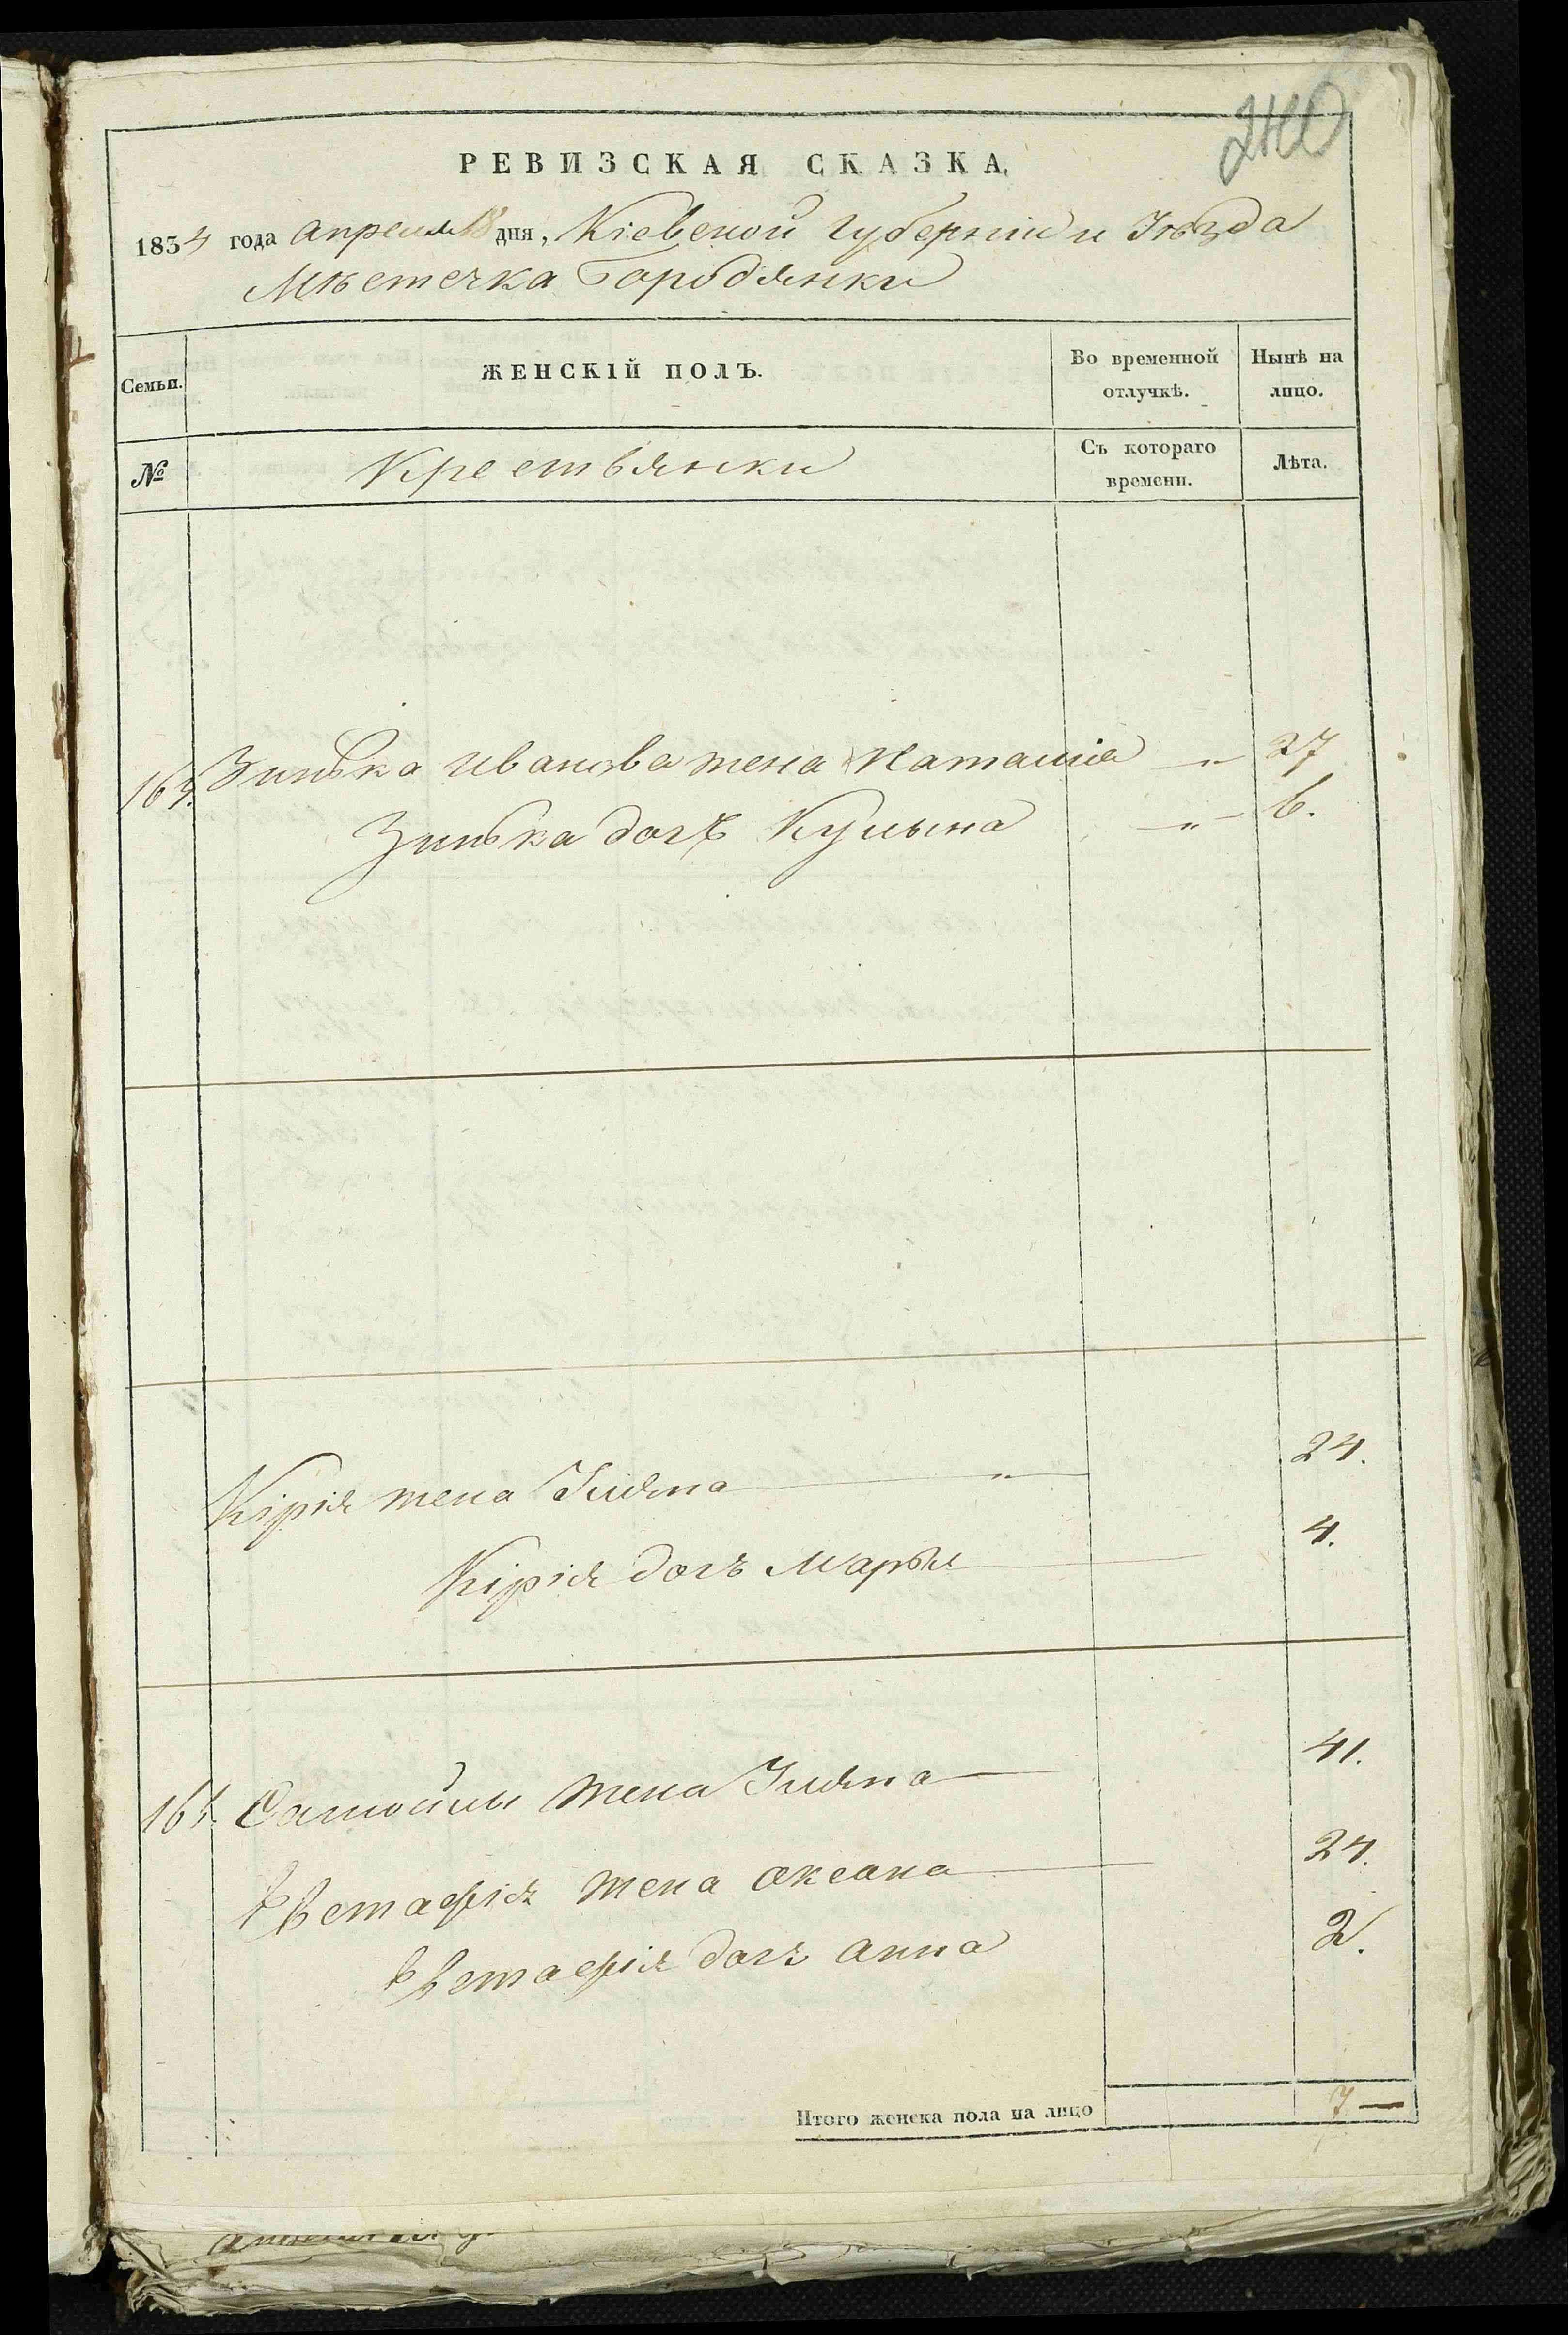 240
РЕВИЗСКАЯ СКАЗКА,
1834 года апреля 18 дня, Кіевской губерніи и Уѣзда
Мѣстечка Бородянки
Семьи.
ЖЕНСКІЙ ПОЛЪ.
Во временной отлучкѣ.
Нынѣ на лицо.
№
Крестьянки
Съ котораго времени.
Лѣта.
164. Зинька Иванова жена Наталия — 27
Зинька дочь Кулына — 6.
Кірія жена Уляна — 24.
Кірія дочь Марья 4.
165. Самойлы жена Уляна 41.
Евстафія жена Оксана 24.
Евстафія дочь Анна 2.
Итого женска пола на лицо 7 —